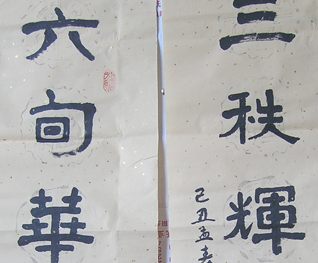 三秩輝
己丑孟
六旬華